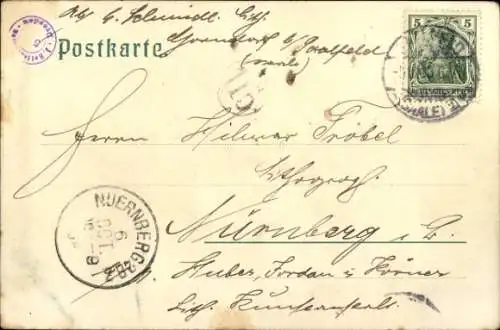 Abs. G. Schmidt, Lith.
Postkarte
b/ Saalfeld
(Saale)
5 5
(SAALE)
Herrn Hilmar Fröbel
Lithograph
Nürnberg
NUERNBERG
6
OCT.
8
Huber, Jordan u. Körner
Lith. Kunstanstalt.